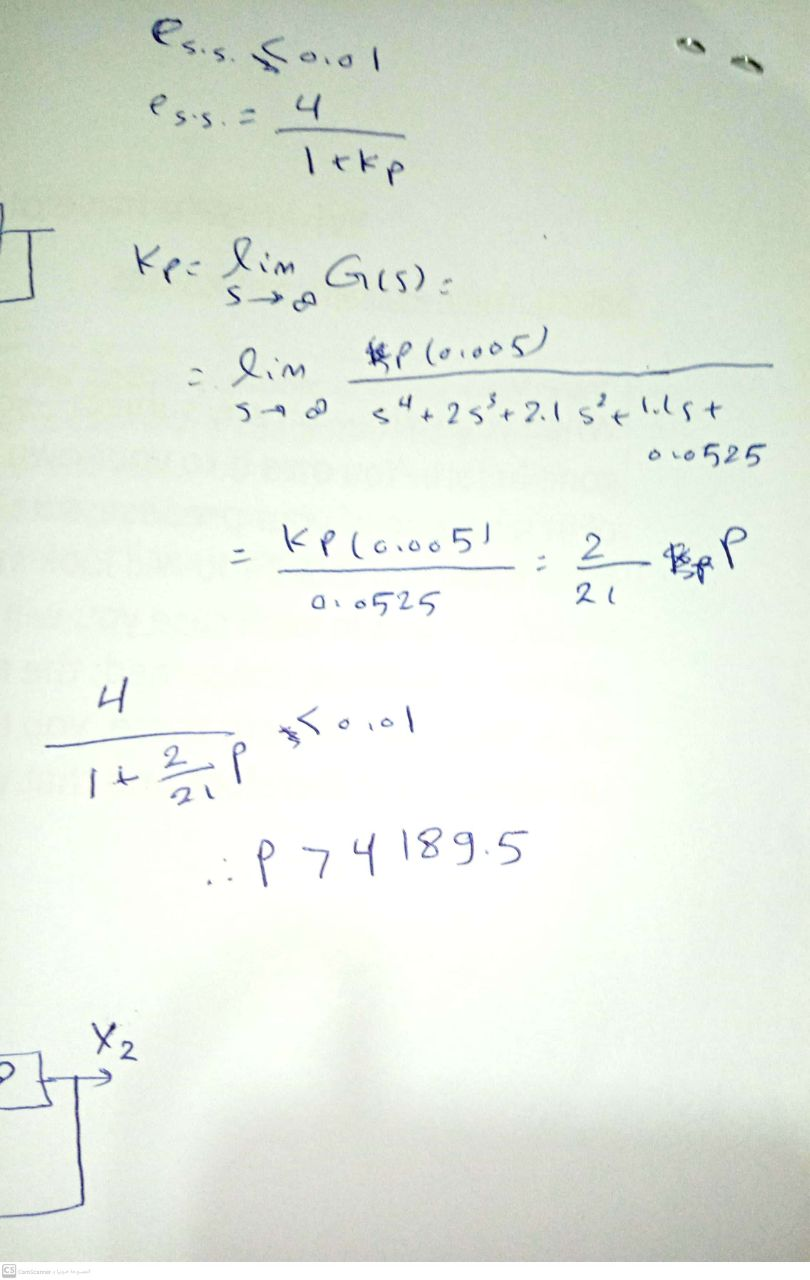 e s.s. < 0.01
e s.s. = 4 / 1 + Kp
Kp = lim s→∞ G(s) =
= lim s→∞ P(0.005) / s⁴ + 2s³ + 2.1s² + 1.1s + 0.0525
= KP(0.005) / 0.0525 = 2/21 P
4 / 1 + 2/21 P < 0.01
∴ P > 4189.5
X₂
CS CamScanner